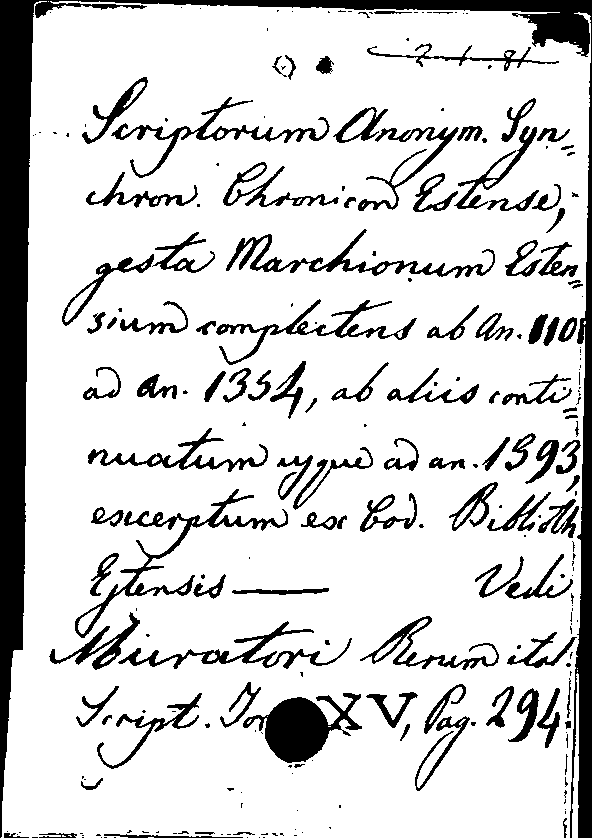 2.1.81
Scriptorum Anonym. Syn=
chron. Chronicon Estense,
gesta Marchionum Esten=
sium complectens ab An. 1101
ad an. 1354, ab aliis conti=
nuatum usque ad an. 1393,
excerptum ex Cod. Biblioth.
Estensis — Vedi
Muratori Rerum ital.
Script. Tom XV, Pag. 294.